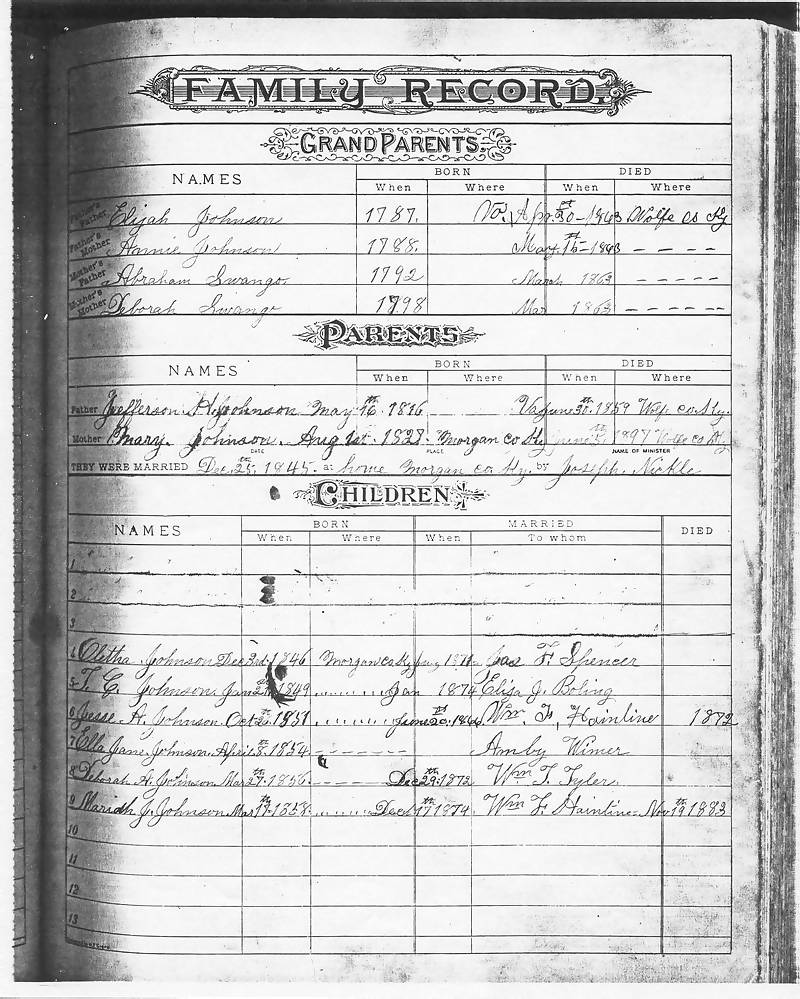 FAMILY RECORD.
GRAND PARENTS.
NAMES BORN DIED
When Where When Where
Father's Father Elijah Johnson 1787. Va. Apr. 30 - 1863 Wolfe co Ky
Father's Mother Annie Johnson 1788. May. 15th - 1883 - - - -
Mother's Father Abraham Swango. 1792 March 1863 - - - - -
Mother's Mother Deborah Swango 1798 Mar 1863 - - - - -
PARENTS
NAMES BORN DIED
When Where When Where
Father Jefferson H. Johnson May 16th. 1816 Va June 30th. 1859 Wolf co. Ky.
Mother Mary. Johnson. Aug 1st. 1827. Morgan co Ky June 1897 Wolfe co Ky
DATE PLACE NAME OF MINISTER
THEY WERE MARRIED Dec. 25th, 1845. at home Morgan co Ky. by Joseph Nickle
CHILDREN
NAMES BORN MARRIED DIED
When Where When To whom
1
2
3
4 Oletha Johnson Dec 3rd. 1846 Morgan co Ky 1871 Jas F. Spencer
5 T. C. Johnson. Jan 1849 " " " " Jan 1874 Eliza J. Boling
6 Jesse A. Johnson. Oct 1851 " " " " June 20th. Wm. F. Hainline 1872
7 Ella Jane Johnson. April 8th. 1854. - - - - - - Amby Wimer
8 Deborah A. Johnson Mar 27th. 1856. - - - - - Dec 29th. 1872 Wm T. Tyler.
9 Mariah J. Johnson Mar 17th. 1858. " " " " Dec 17th 1874 Wm F. Hainline - Nov 19th 1883
10
11
12
13